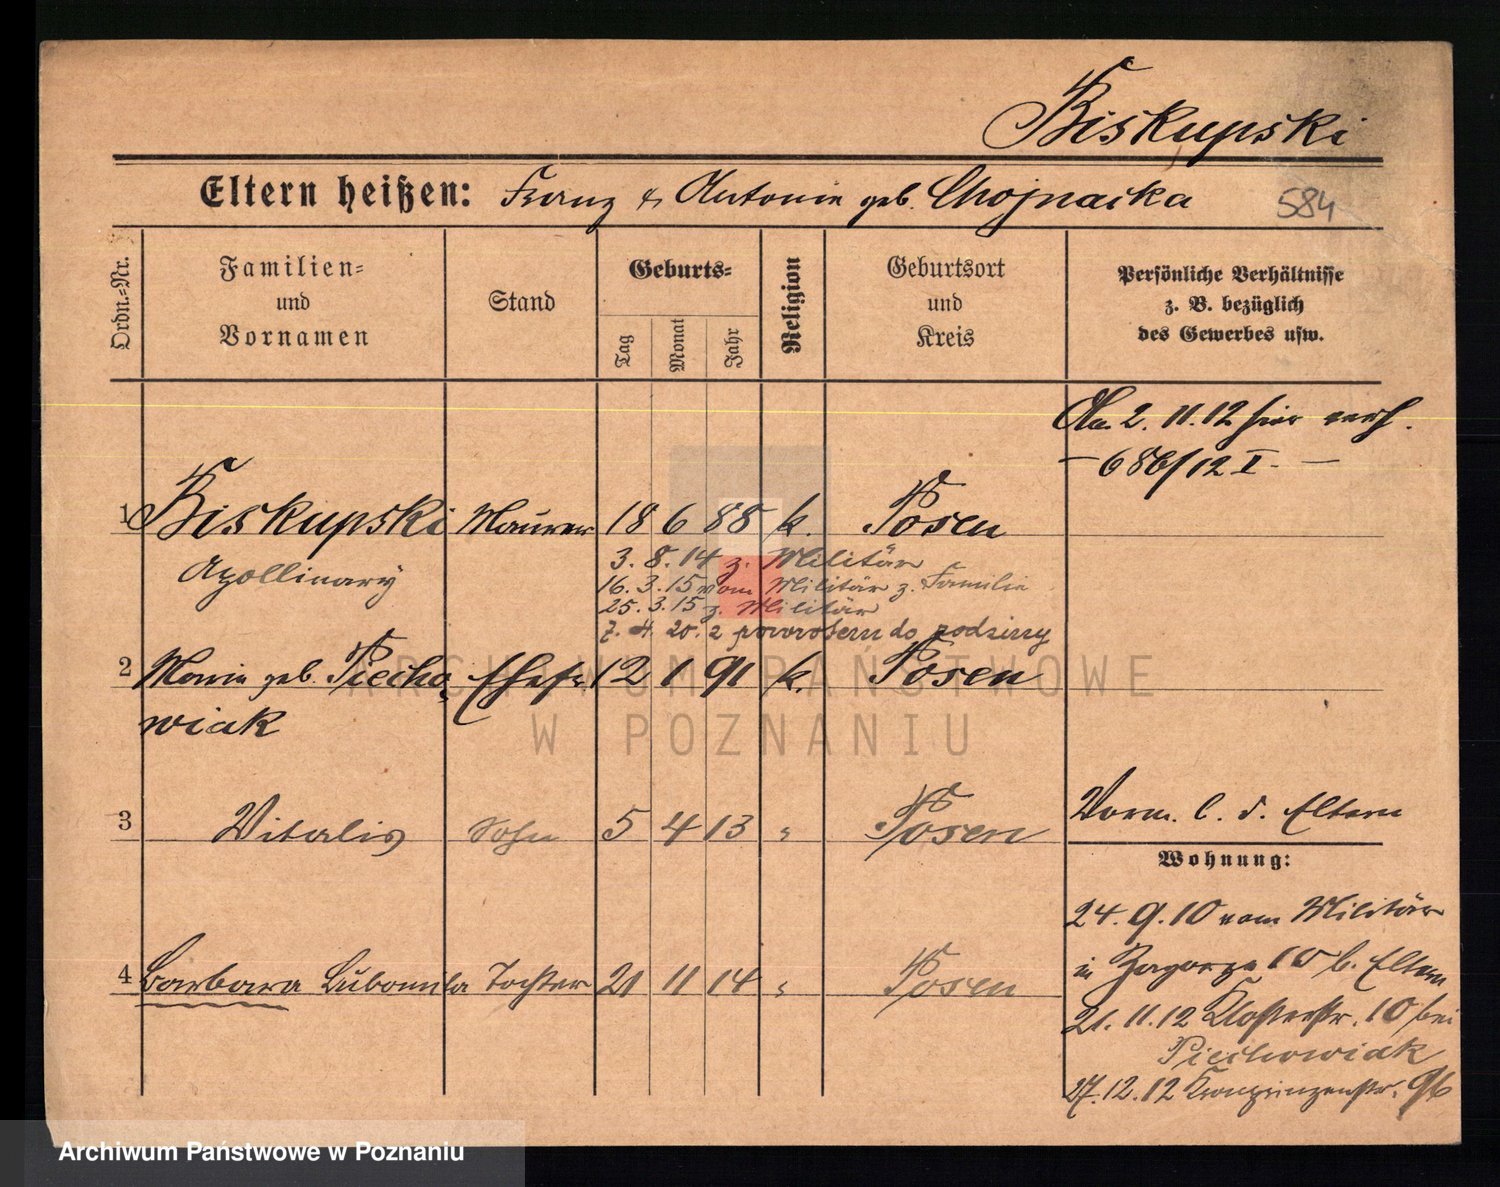 Biskupski
Eltern heißen: Franz & Antonie geb. Chojnacka 584
Ordn.-Nr.
Familien-
und
Vornamen
Stand
Geburts-
Tag
Monat
Jahr
Religion
Geburtsort
und
Kreis
Persönliche Verhältnisse
z. B. bezüglich
des Gewerbes usw.
2. 11. 12 hier verh.
— 686/12 I. —
1 Biskupski Maurer 18 6 88 k. Posen
Apollinary
3. 8. 14 z. Militär
16. 3. 15 vom Militär z. Familie
25. 3. 15 z. Militär
7. 4. 20. z powrotem do rodziny
2 Marie geb. Piecho- Ehefr. 12 1 91 k. Posen
wiak
3 Vitalis Sohn 5 4 13 " Posen
Vorm. b. d. Eltern
Wohnung:
24. 9. 10 vom Militär
in Zagorze 10 b. Eltern
4 Barbara Lubomila Tochter 21 11 14 " Posen
21. 11. 12 Klosterstr. 10 bei
Piechowiak
27. 12. 12 Kronprinzenstr. 96
ARCHIWUM PAŃSTWOWE
W POZNANIU
Archiwum Państwowe w Poznaniu